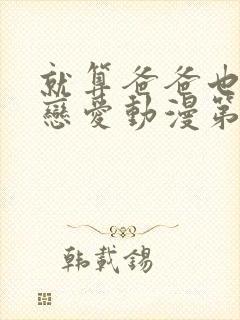 就算爸爸也
戀愛動漫第
韩載錫